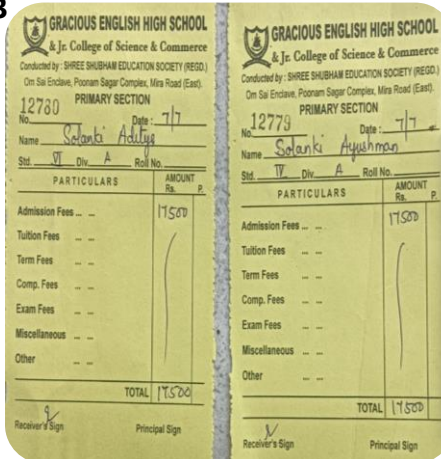 3
GRACIOUS ENGLISH HIGH SCHOOL
& Jr. College of Science & Commerce
Conducted by : SHREE SHUBHAM EDUCATION SOCIETY (REGD.)
Om Sai Enclave, Poonam Sagar Complex, Mira Road (East).
PRIMARY SECTION
No. 12780 Date : 7/7
Name Solanki Aditya
Std. VI Div. A Roll No.
PARTICULARS AMOUNT
Rs. P.
Admission Fees ... ... 17500
Tuition Fees ... ...
Term Fees ... ...
Comp. Fees ... ...
Exam Fees ... ...
Miscellaneous ... ...
Other ... ...
TOTAL 17500
Receiver's Sign Principal Sign
GRACIOUS ENGLISH HIGH SCHOOL
& Jr. College of Science & Commerce
Conducted by : SHREE SHUBHAM EDUCATION SOCIETY (REGD.)
Om Sai Enclave, Poonam Sagar Complex, Mira Road (East).
PRIMARY SECTION
No. 12779 Date : 7/7
Name Solanki Ayushman
Std. IV Div. A Roll No.
PARTICULARS AMOUNT
Rs. P.
Admission Fees ... ... 17500
Tuition Fees ... ...
Term Fees ... ...
Comp. Fees ... ...
Exam Fees ... ...
Miscellaneous ... ...
Other ... ...
TOTAL 17500
Receiver's Sign Principal Sign